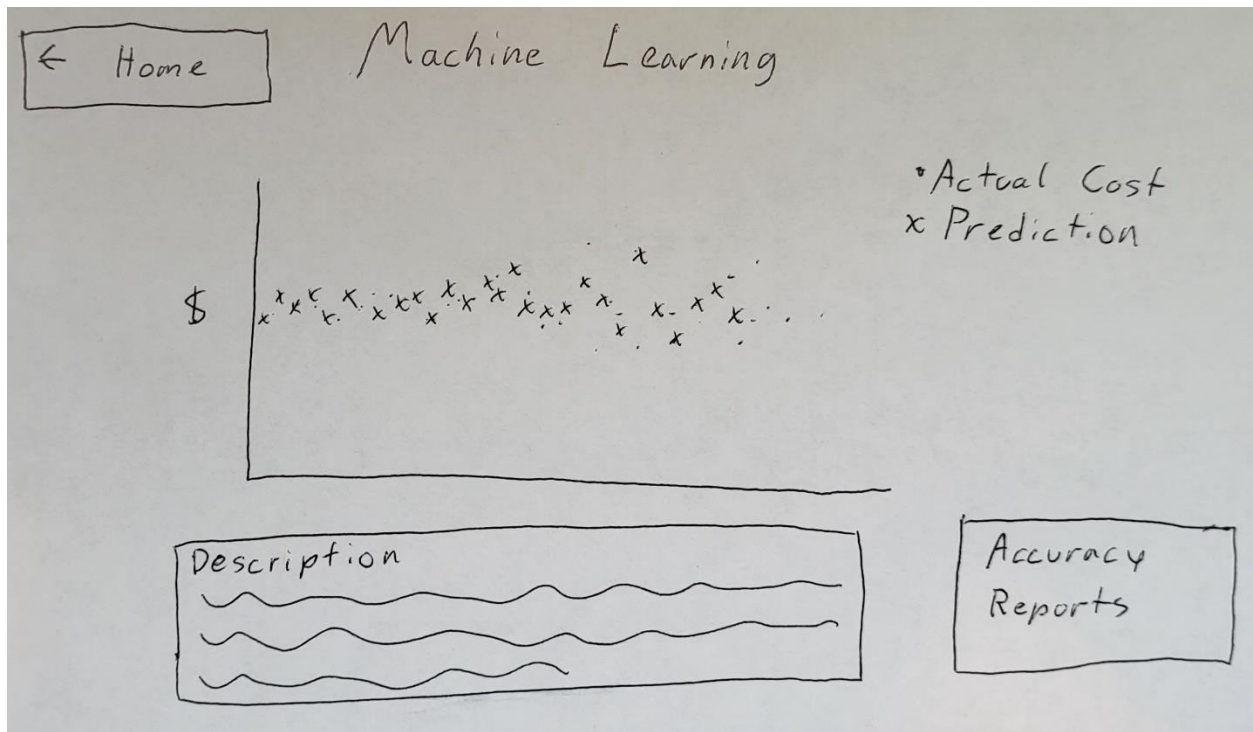 ← Home
Machine Learning
• Actual Cost
x Prediction
$
Description
Accuracy
Reports